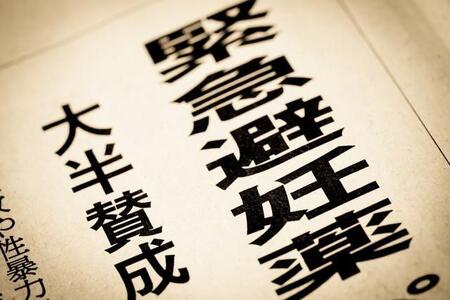 緊急避妊薬。
大半賛成
や性暴力